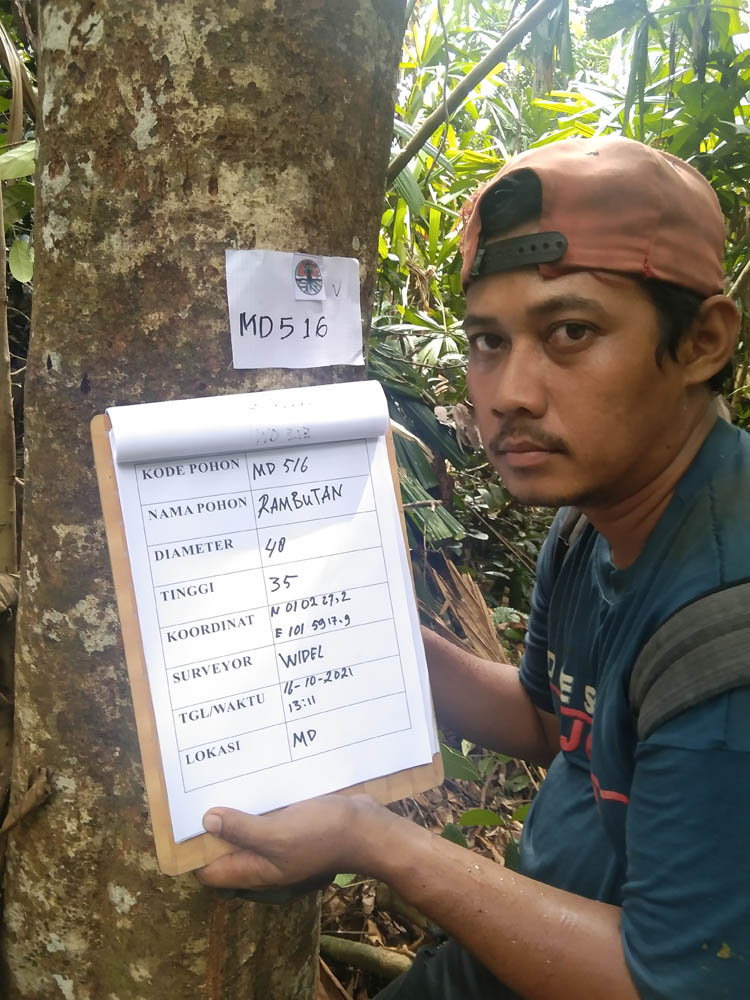 MD516
V
KODE POHON MD 516
NAMA POHON RAMBUTAN
DIAMETER 48
TINGGI 35
KOORDINAT N 01 02 27,2
E 101 59 17.9
SURVEYOR WIDEL
TGL/WAKTU 16-10-2021
13:11
LOKASI MD